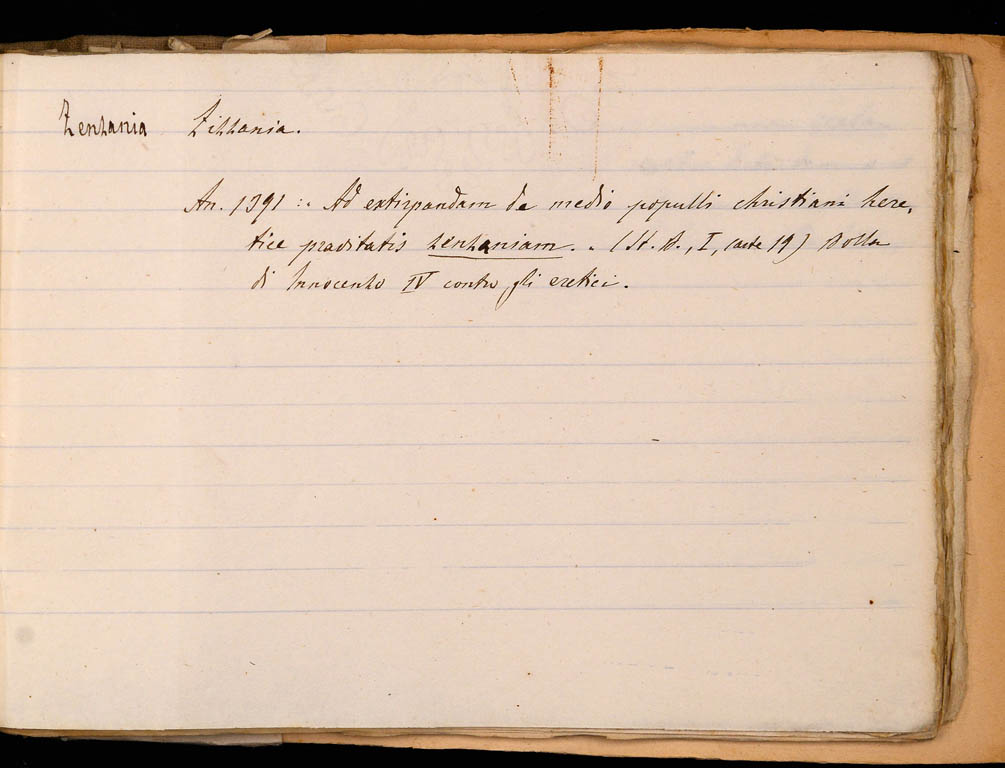 Zenzania Zizzania.
An. 1391 :. Ad extirpandam de medio populli christiani here,
tice pravitatis zenzaniam. . (St. A., I, carte 19) Bolla
di Innocenzo IV contro gli eretici.